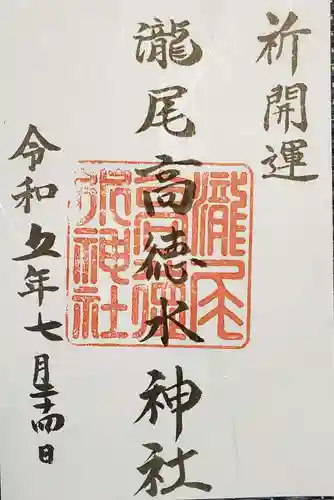 祈開運
瀧尾高徳水神社
令和五年七月二十四日
瀧尾
高徳
水神社